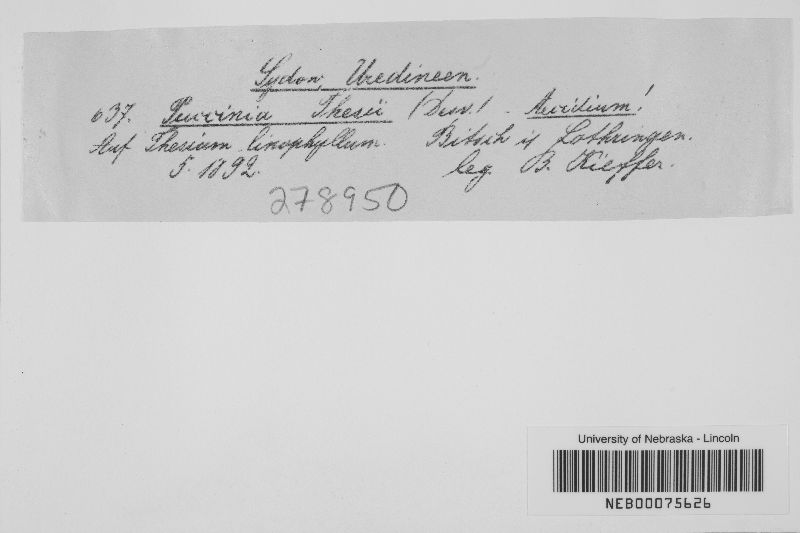 Sydow, Uredineen.
637. Puccinia Thesii (Desv.) - Aecidium!
Auf Thesium linophyllum. Bitsch i/ Lothringen.
5. 1892. leg. B. Kieffer.
278950
University of Nebraska - Lincoln
NEB00075626